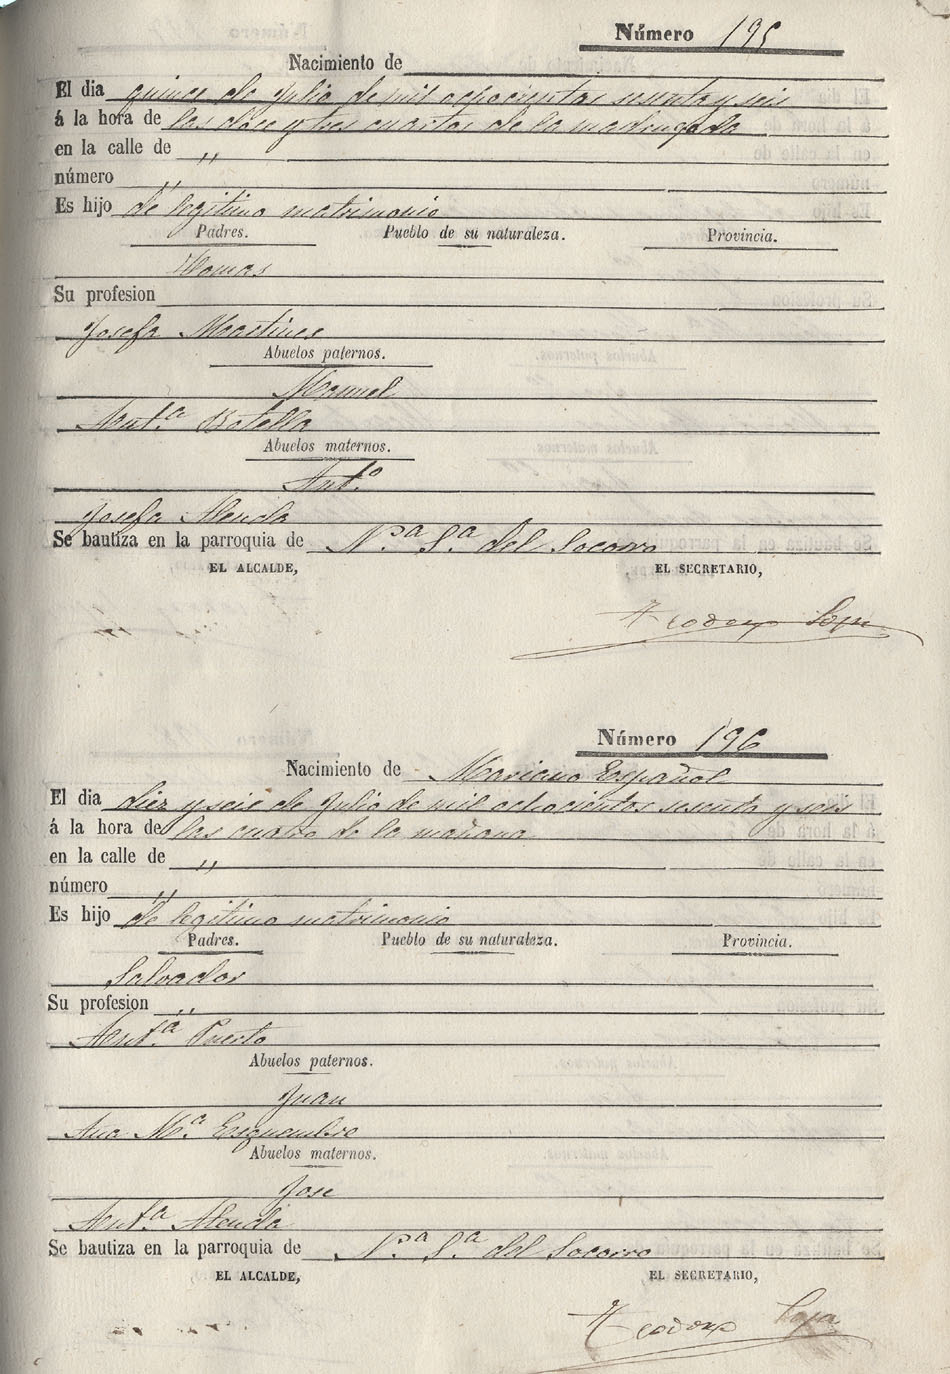 Número 195
Nacimiento de
El dia quince de Julio de mil ochocientos sesenta y seis
á la hora de las doce y tres cuartos de la madrugada
en la calle de "
número "
Es hijo de legitimo matrimonio
Padres. Pueblo de su naturaleza. Provincia.
Tomas
Su profesion
Josefa Martines
Abuelos paternos.
Manuel
Antª Botella
Abuelos maternos.
Antº
Josefa Alenda
Se bautiza en la parroquia de Nª Sª del Socorro
EL ALCALDE, EL SECRETARIO,
Teodoro
Número 196
Nacimiento de Mariano Español
El dia diez y seis de Julio de mil ochocientos sesenta y seis
á la hora de las cuatro de la mañana
en la calle de "
número "
Es hijo de legitimo matrimonio
Padres. Pueblo de su naturaleza. Provincia.
Salvador
Su profesion "
Antª Puerto
Abuelos paternos.
Juan
Ana Mª Esquembre
Abuelos maternos.
Jose
Antª Alenda
Se bautiza en la parroquia de Nª Sª del Socorro
EL ALCALDE, EL SECRETARIO,
Teodoro